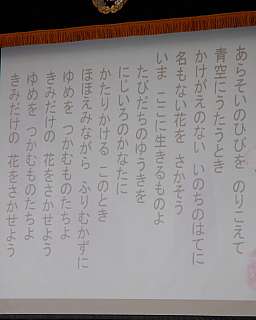 あらそいのひびを のりこえて
青空にうたうとき
かけがえのない いのちのはてに
名もない花を さかそう
いま ここに生きるものよ
たびだちのゆうきを
にじいろのかなたに
かたりかける このとき
ほほえみながら ふりむかずに
ゆめを つかむものたちよ
きみだけの 花をさかせよう
ゆめを つかむものたちよ
きみだけの 花をさかせよう